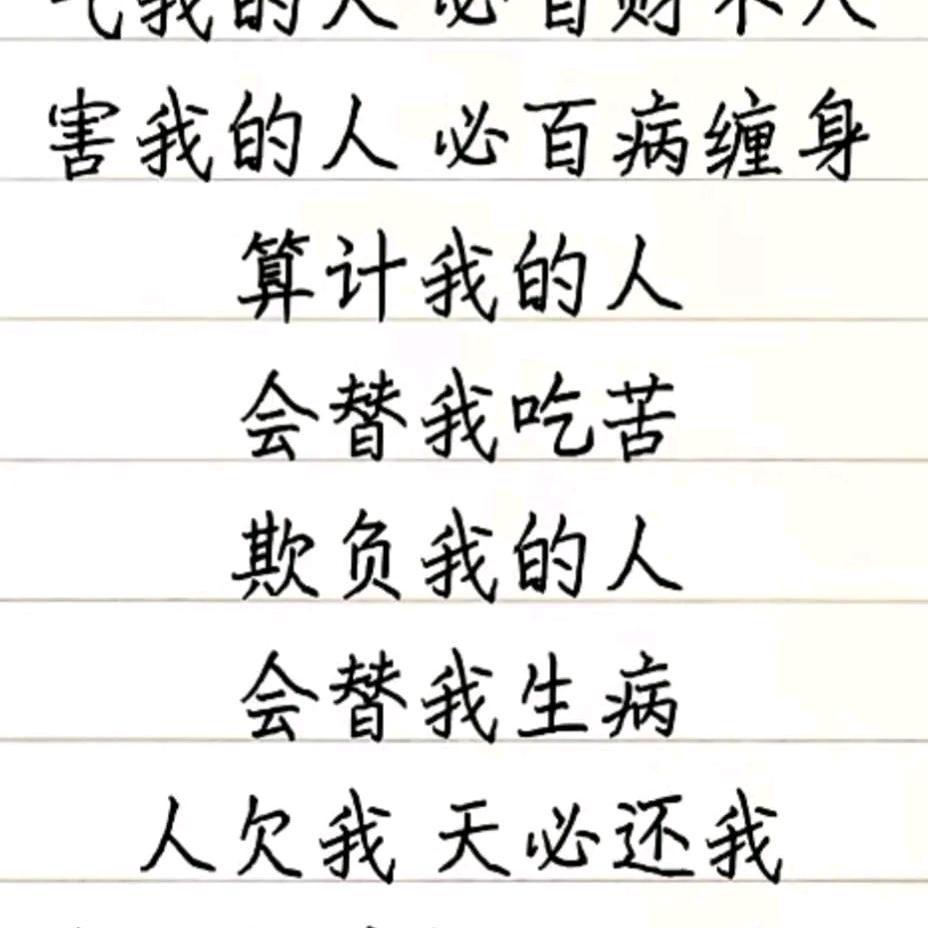 气我的人 必百财不入
害我的人 必百病缠身
算计我的人
会替我吃苦
欺负我的人
会替我生病
人欠我 天必还我